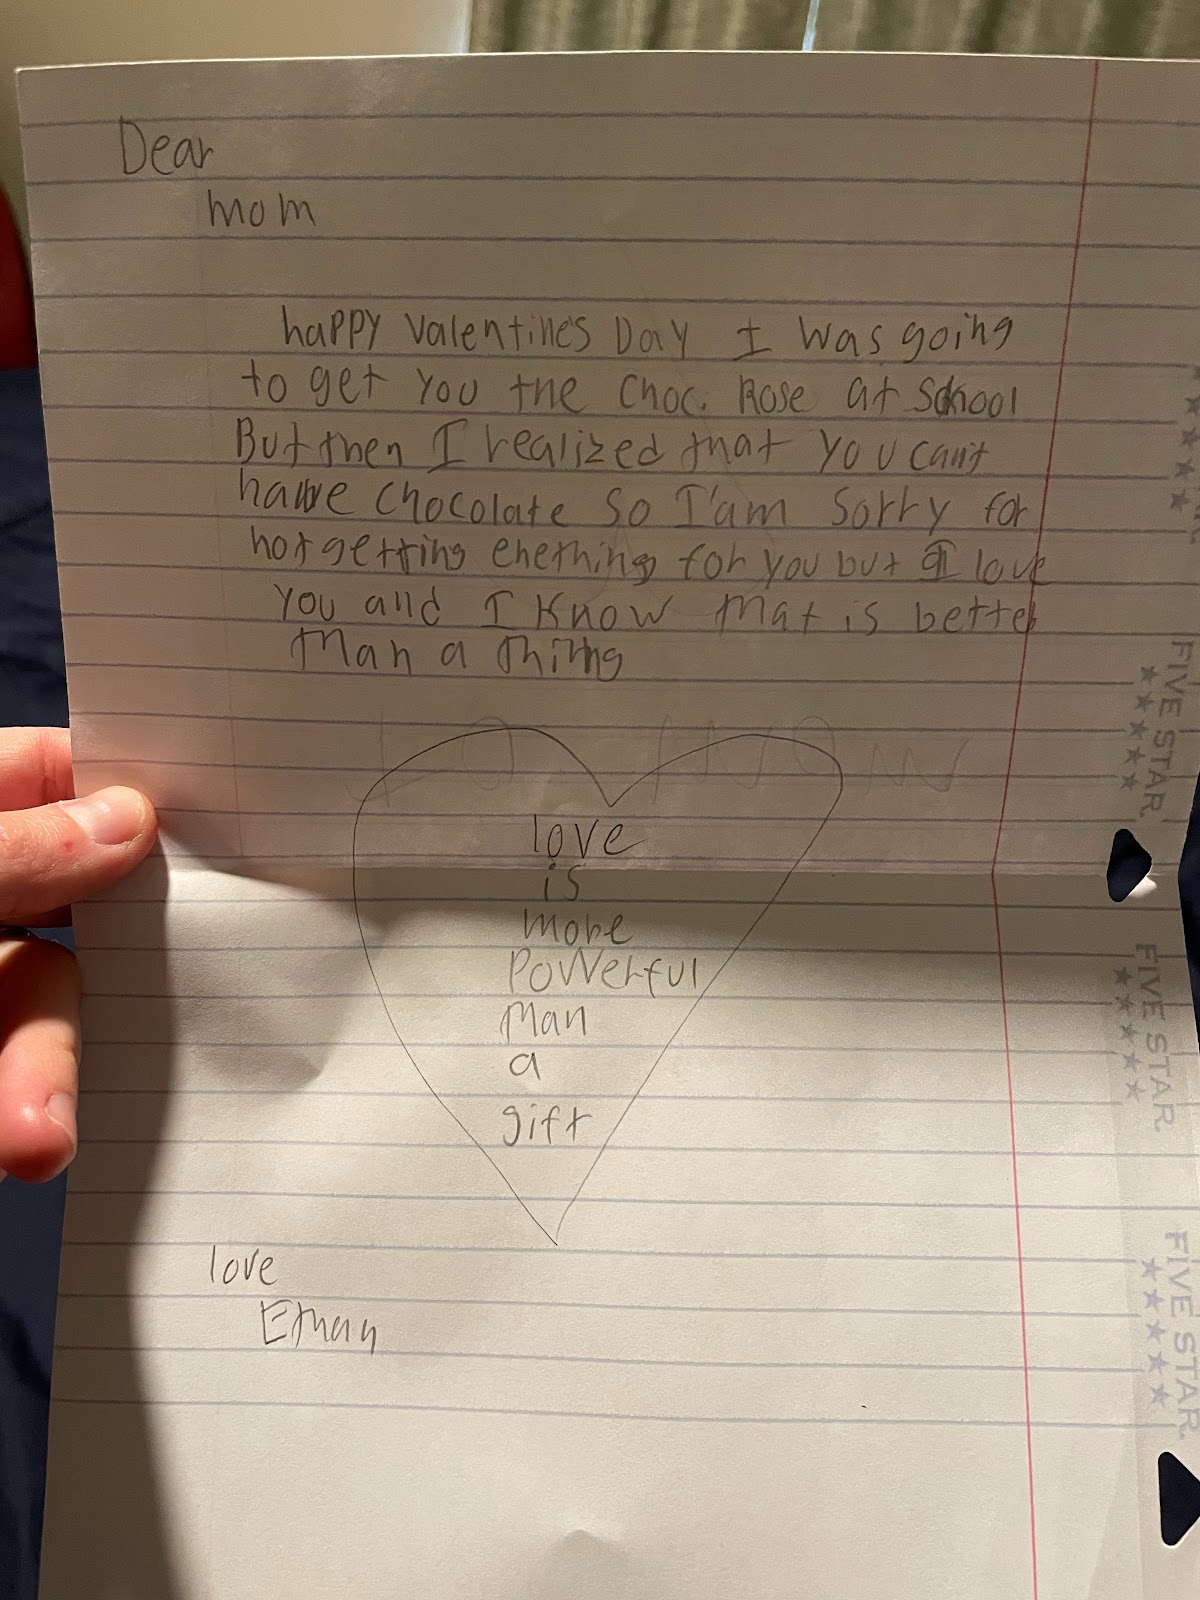 Dear
mom
happy Valentine's Day I was going
to get you the Choc. Rose at School
But then I realized that you can't
have chocolate so I'am sorry for
not getting enething for you but I love
you and I know that is better
than a thing
love
is
more
powerful
than
a
gift
love
Ethan
FIVE STAR
FIVE STAR
FIVE STAR